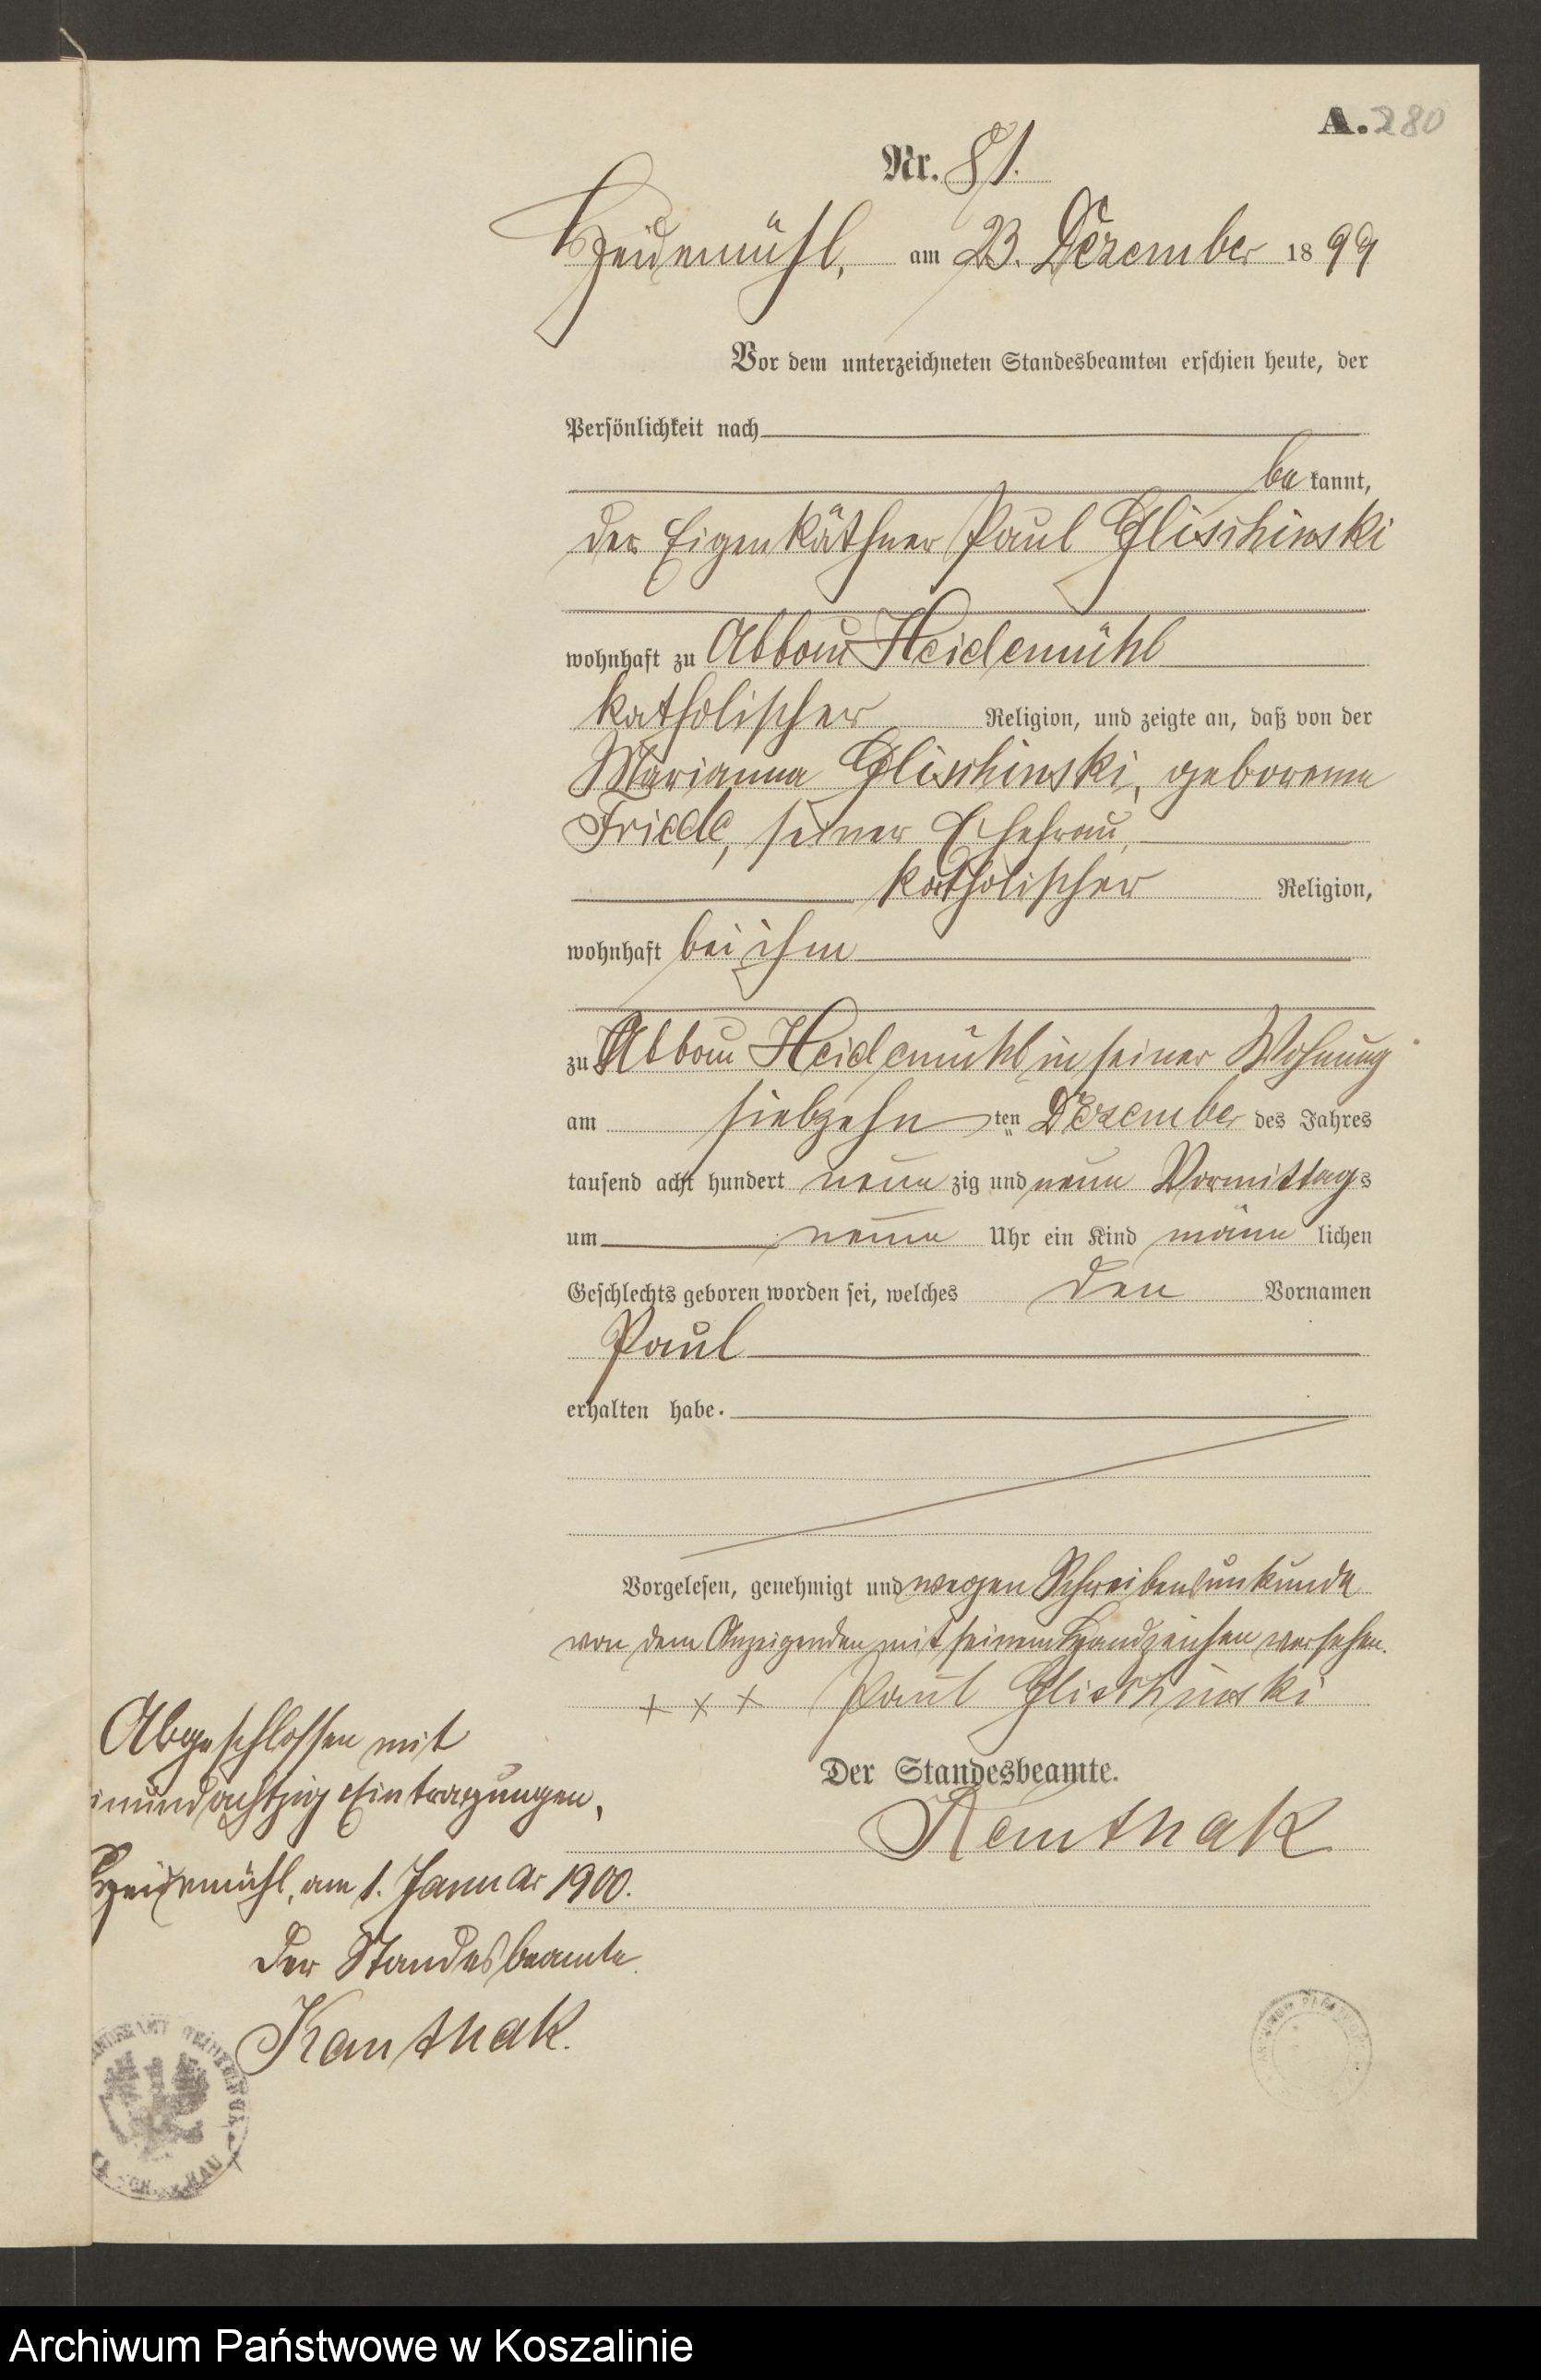 A. 280
Nr. 81.
Heidemühl, am 23. Dezember 1899
Vor dem unterzeichneten Standesbeamten erschien heute, der
Persönlichkeit nach
be kannt,
der Eigenkäthner Paul Glischinski
wohnhaft zu Abbau Heidemühl
katholischer Religion, und zeigte an, daß von der
Marianna Glischinski, geborenen
Friede, seiner Ehefrau,
katholischer Religion,
wohnhaft bei ihm
zu Abbau Heidemühl in seiner Wohnung
am siebzehn ten Dezember des Jahres
tausend acht hundert neun zig und neun Vormittags
um neun Uhr ein Kind männ lichen
Geschlechts geboren worden sei, welches den Vornamen
Paul
erhalten habe.
Vorgelesen, genehmigt und wegen Schreibensunkunde
von dem Anzeigenden mit seinem Handzeichen versehen.
+ + + Paul Glischinski
Der Standesbeamte.
Kanthak
Abgeschlossen mit
inundachtzig Eintragungen,
Heidemühl, am 1. Januar 1900.
Der Standesbeamte.
Kanthak.
Archiwum Państwowe w Koszalinie